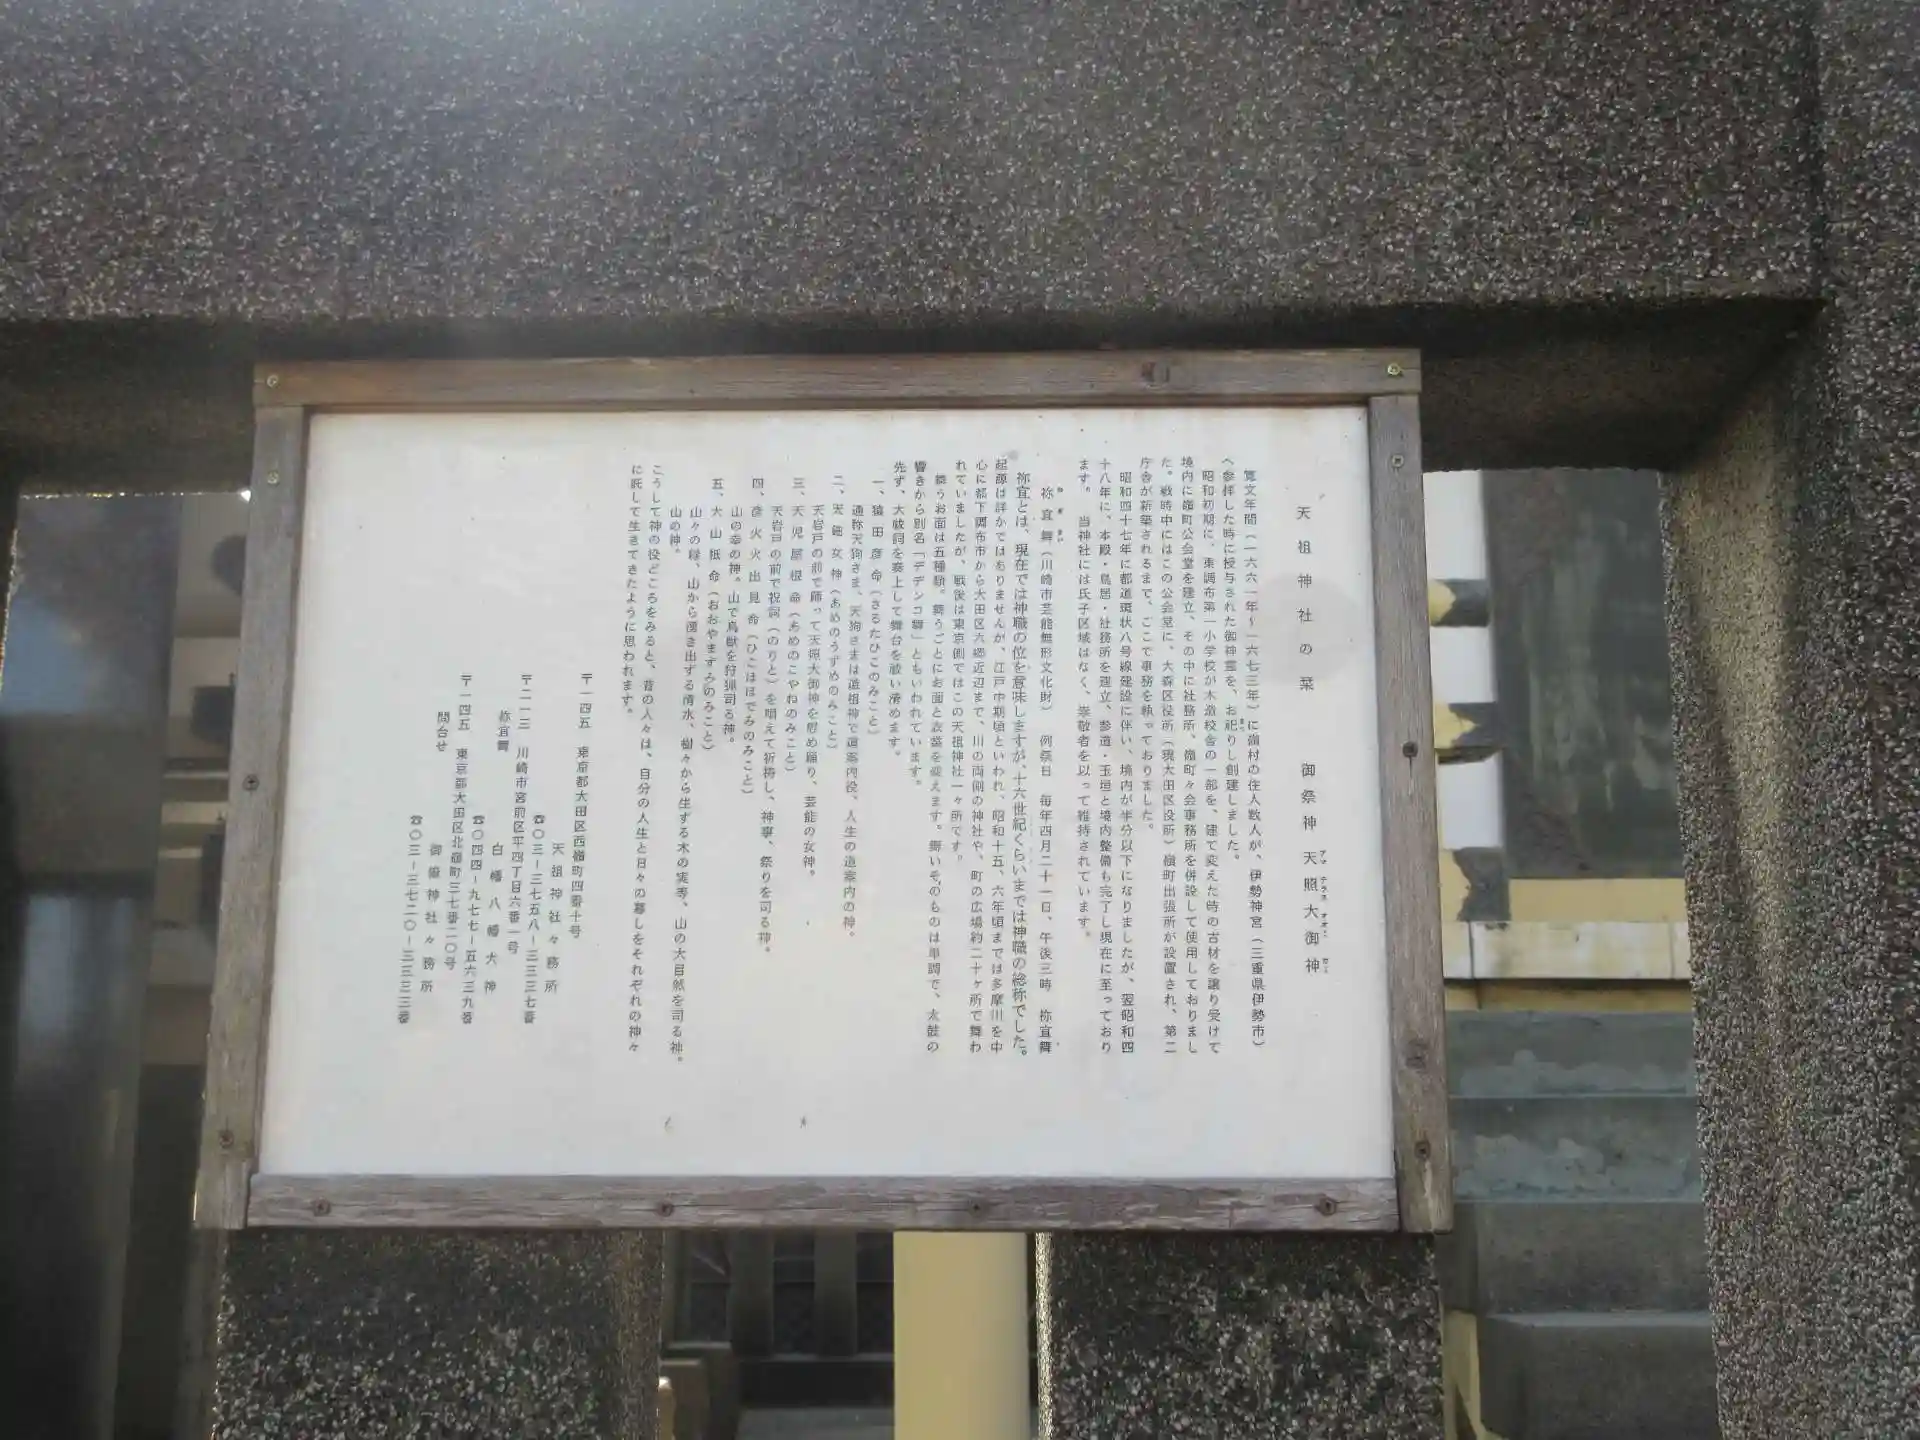 天祖神社の栞　御祭神　天照大御神
寛文年間（一六六一年～一六七三年）に嶺村の住人数人が、伊勢神宮（三重県伊勢市）
へ参拝した時に授与された御神霊を、お祀りし創建しました。
昭和初期に、東調布第一小学校が木造校舎の一部を、建て変えた時の古材を譲り受けて
境内に嶺町公会堂を建立、その中に社務所、嶺町々会事務所を併設して使用しておりまし
た。戦時中にはこの公会堂に、大森区役所（現大田区役所）嶺町出張所が設置され、第二
庁舎が新築されるまで、ここで事務を執っておりました。
昭和四十七年に都道環状八号線建設に伴い、境内が半分以下になりましたが、翌昭和四
十八年に、本殿・鳥居・社務所を建立、参道・玉垣と境内整備も完了し現在に至っており
ます。　当神社には氏子区域はなく、崇敬者を以って維持されています。
祢宜舞（川崎市芸能無形文化財）　例祭日　毎年四月二十一日、午後三時　祢宜舞
祢宜とは、現在では神職の位を意味しますが、十六世紀くらいまでは神職の総称でした。
起源は詳かではありませんが、江戸中期頃といわれ、昭和十五、六年頃までは多摩川を中
心に都下調布市から大田区六郷近辺まで、川の両側の神社や、町の広場約二十ヶ所で舞わ
れていましたが、戦後は東京側ではこの天祖神社一ヶ所です。
舞うお面は五種類。舞うごとにお面と衣裳を変えます。舞いそのものは単調で、太鼓の
響きから別名「デデンコ舞」ともいわれています。
先ず、大祓詞を奏上して舞台を祓い清めます。
一、猿田彦命（さるたひこのみこと）
通称天狗さま、天狗さまは道祖神で道案内役、人生の道案内の神。
二、天鈿女神（あめのうずめのみこと）
天岩戸の前で踊って天照大御神を慰め踊り、芸能の女神。
三、天児屋根命（あめのこやねのみこと）
天岩戸の前で祝詞（のりと）を唱えて祈祷し、神事、祭りを司る神。
四、彦火火出見命（ひこほほでみのみこと）
山の幸の神。山で鳥獣を狩猟司る神。
五、大山祇命（おおやまずみのみこと）
山々の緑、山から湧き出ずる清水、樹々から生ずる木の実等、山の大自然を司る神。
山の神。
こうして神の役どころをみると、昔の人々は、自分の人生と日々の暮しをそれぞれの神々
に託して生きてきたように思われます。
〒一四五　東京都大田区西嶺町四番十号
天祖神社々務所
☎〇三－三七五八－三三三七番
〒二一三　川崎市宮前区平四丁目六番一号
祢宜舞　白幡八幡大神
☎〇四四－九七七－五六三九番
〒一四五　東京都大田区北嶺町三七番二〇号
問合せ　御嶽神社々務所
☎〇三－三七二〇－三三三三番